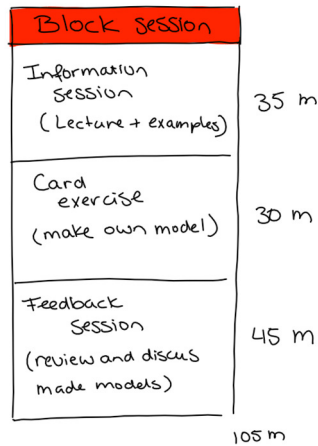 Block session
Information
session
(Lecture + examples)
35 m
Card
exercise
(make own model)
30 m
Feedback
session
(review and discus
made models)
45 m
105 m